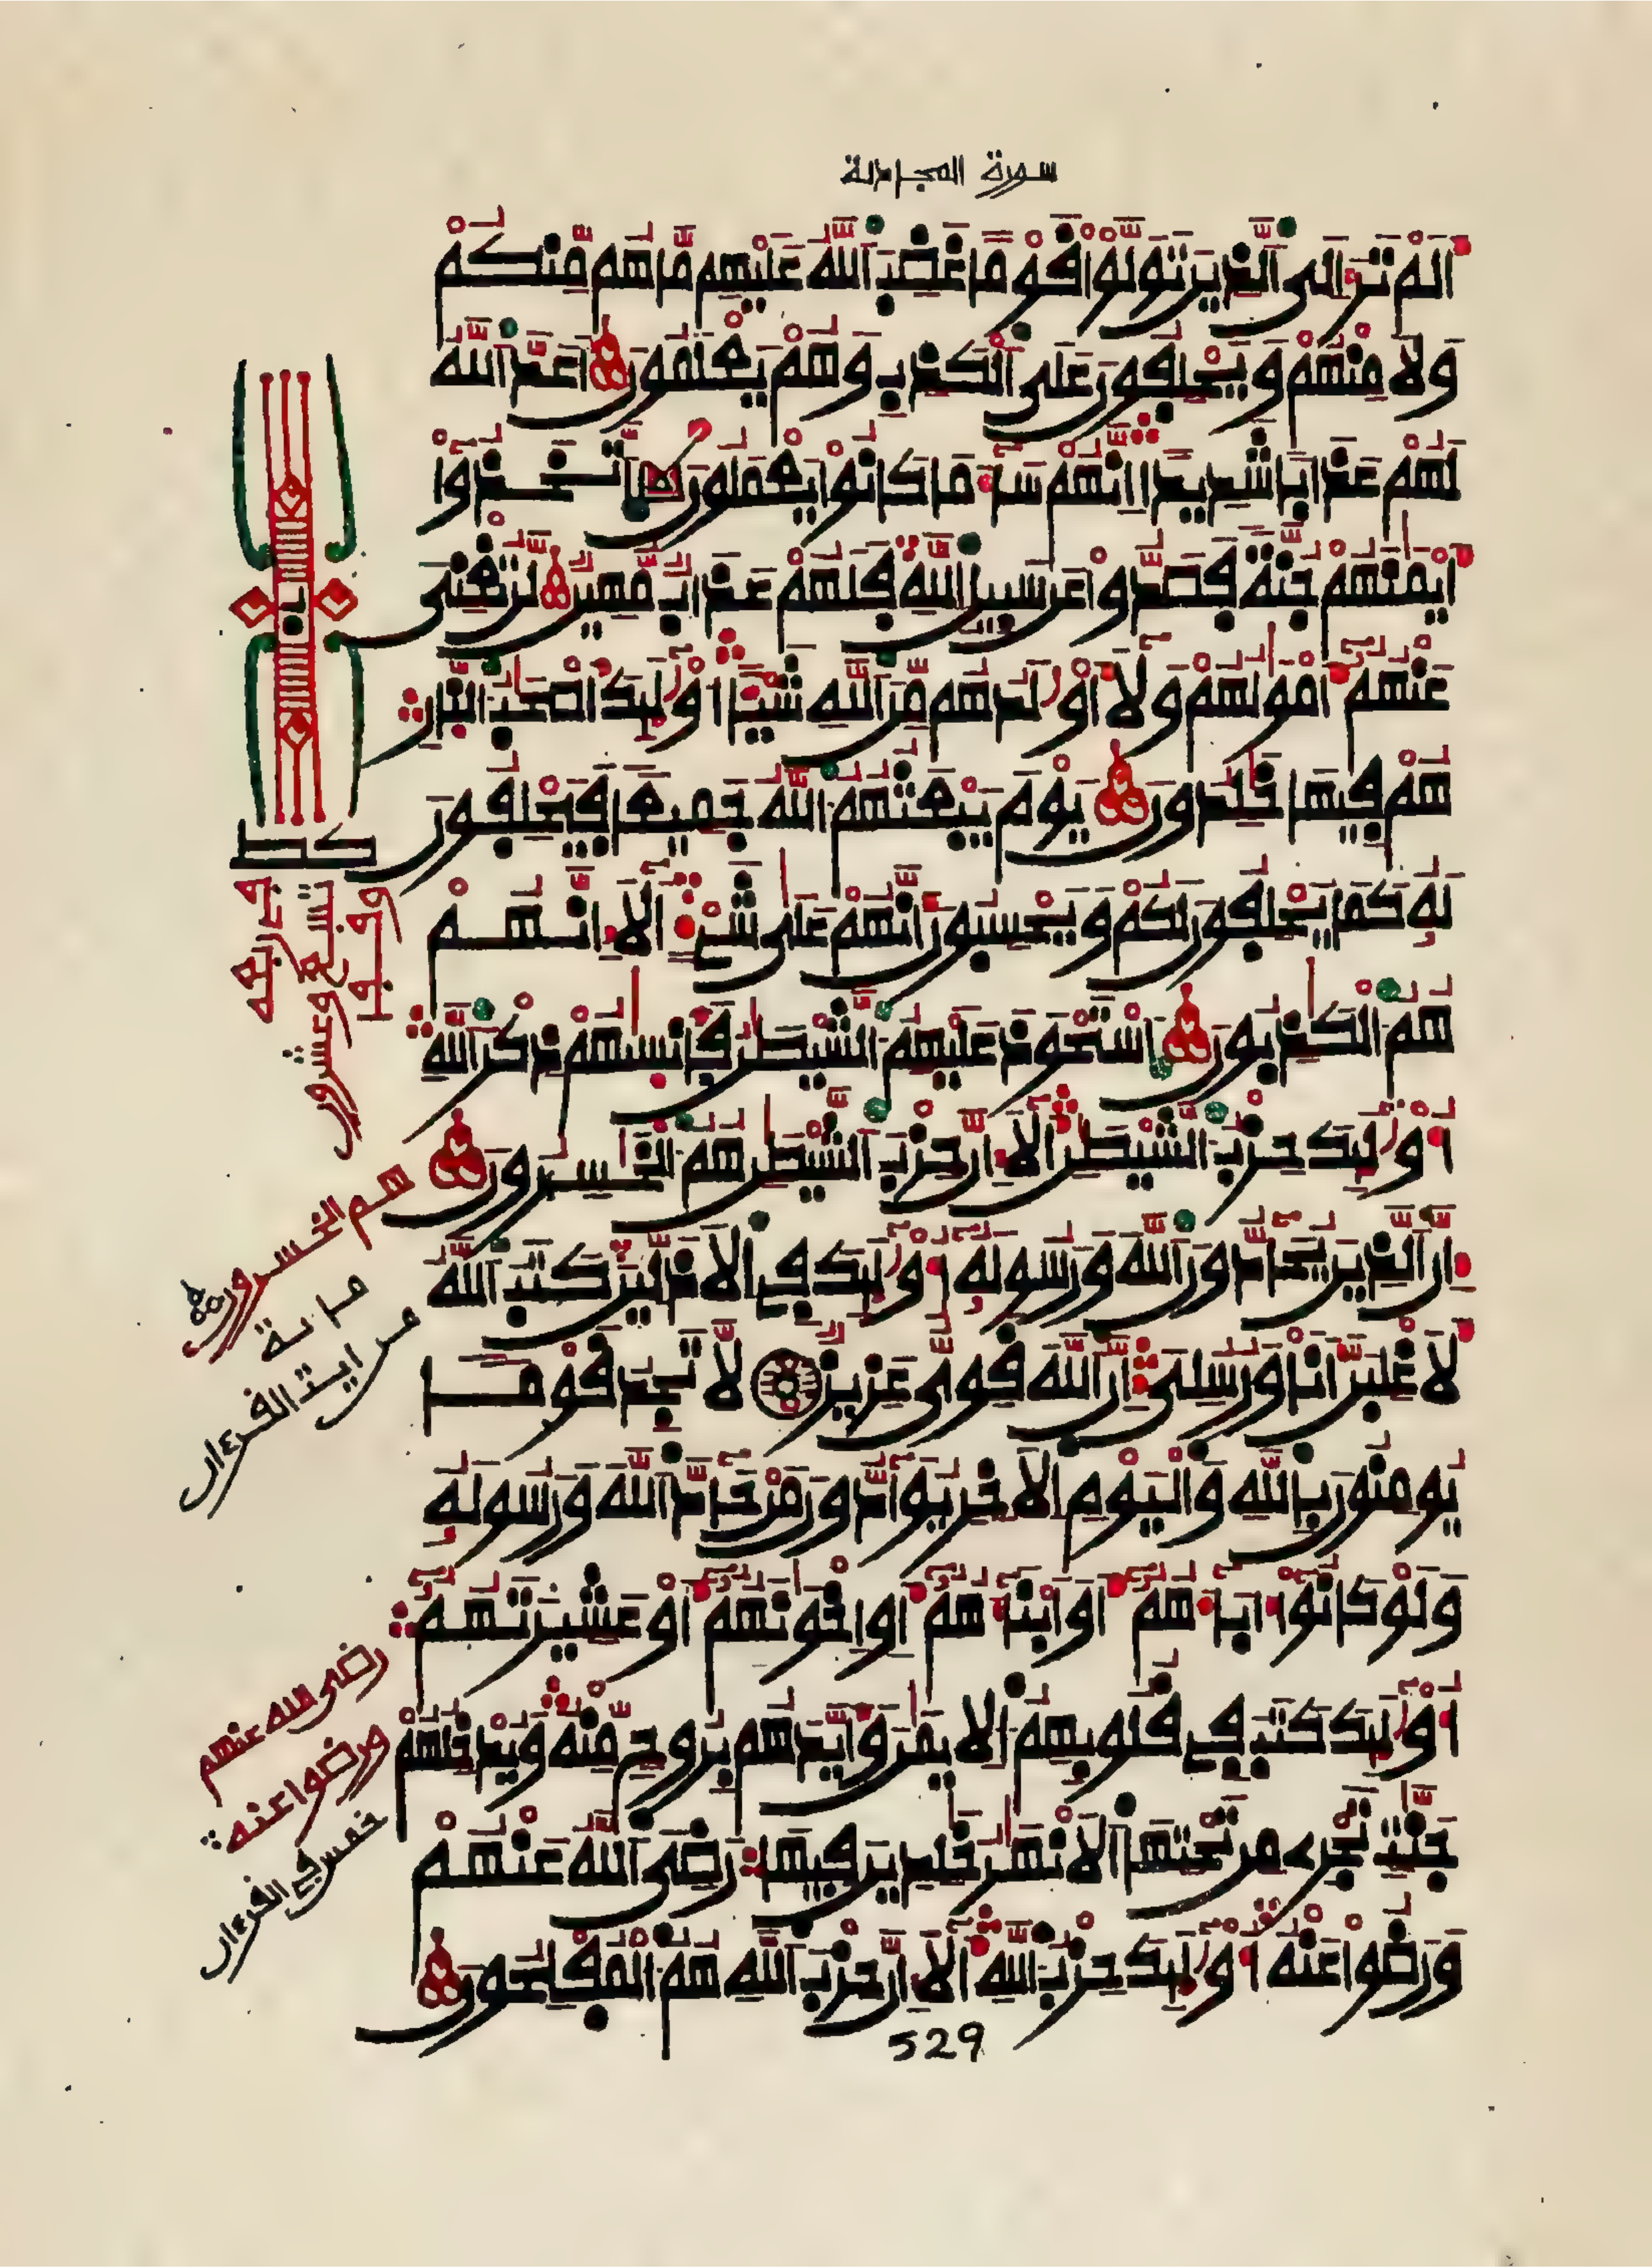 سورة المجادلة
ألم تر إلى الذين تولوا قوما غضب الله عليهم ما هم منكم
ولا منهم ويحلفون على الكذب وهم يعلمون أعد الله
لهم عذابا شديدا إنهم ساء ما كانوا يعملون اتخذوا
أيمنهم جنة فصدوا عن سبيل الله فلهم عذاب مهين لن تغنى
عنهم أمولهم ولا أولدهم من الله شيئا أولئك أصحب النار
هم فيها خلدون يوم يبعثهم الله جميعا فيحلفون
له كما يحلفون لكم ويحسبون أنهم على شىء ألا إنهم
هم الكذبون استحوذ عليهم الشيطن فأنسيهم ذكر الله
أولئك حزب الشيطن ألا إن حزب الشيطن هم الخسرون
إن الذين يحادون الله ورسوله أولئك فى الأذلين كتب الله
لأغلبن أنا ورسلى إن الله قوى عزيز لا تجد قوما
يومنون بالله واليوم الأخر يوادون من حاد الله ورسوله
ولو كانوا ءاباءهم أو أبناءهم أو إخونهم أو عشيرتهم
أولئك كتب فى قلوبهم الإيمن وأيدهم بروح منه ويدخلهم
جنت تجرى من تحتها الأنهر خلدين فيها رضى الله عنهم
ورضوا عنه أولئك حزب الله ألا إن حزب الله هم المفلحون
529
تسع وعشرون
هم الخسرون
من ايت القرءان
رضى الله عنهم
ورضوا عنه
خمس فى القرءان